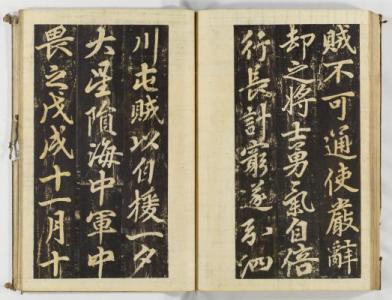 賊不可通使嚴辭
却之將士勇氣自倍
行長計窮遂引泗
川屯賊以自援一夕
大星隕海中軍中
畏之戊戌十一月十